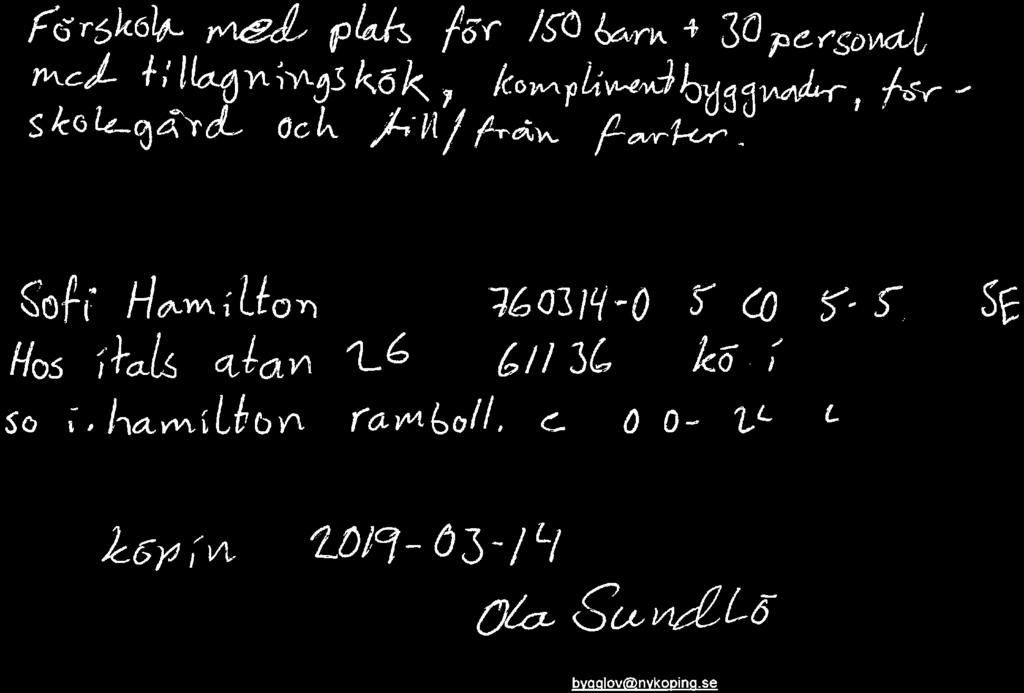 Förskola med plats för 150 barn + 30 personal
med tillagningskök, komplimentbyggnader, för-
skolegård och till/från farter.
Sofi Hamilton 760314-0 5 CO 5-5 SE
Hos itals atan 26 611 36 kö i
so i.hamilton ramboll. c 0 0-
köpin 2019-03-14
Ola SundLö
bygglov@nykoping.se